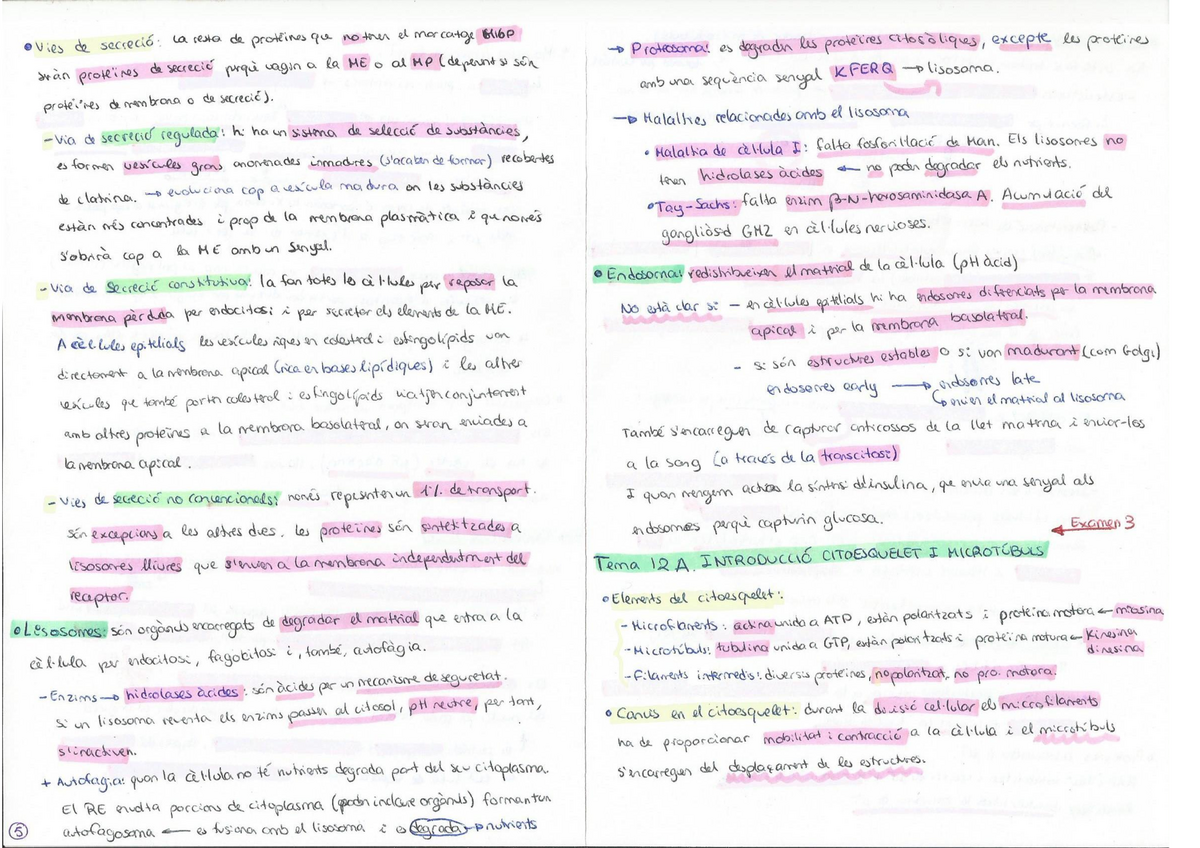 • Vies de secreció: la resta de proteïnes que no tenen el marcatge M6P
seràn proteïnes de secreció perquè vagin a la ME o al MP (depenent si són
proteïnes de membrana o de secreció).
- Via de secreció regulada: hi ha un sistema de selecció de substàncies,
es formen vesícules grans anomenades inmadures (s'acaben de formar) recobertes
de clatrina. → evoluciona cap a vesícula madura on les substàncies
estàn més concentrades i prop de la membrana plasmàtica i que només
s'obrirà cap a la ME amb un senyal.
- Via de secreció constitutiva: la fan totes les cèl·lules per reposar la
membrana pèrduda per endocitosi i per secretar els elements de la ME.
A cèl·lules epitelials les vesícules riques en colesterol i esfingolípids van
directament a la membrana apical (rica en bases lipídiques) i les altres
vesícules que també porten colesterol i esfingolípids viatjen conjuntament
amb altres proteïnes a la membrana basolateral, on seran enviades a
la membrana apical.
- Vies de secreció no convencionals: només representen un 1% de transport.
són excepcions a les altres dues. les proteïnes són sintetitzades a
lisosomes lliures que s'envien a la membrana independentment del
receptor.
• Lisosomes: són orgànuls encarregats de degradar el material que entra a la
cèl·lula per endocitosi, fagocitosi i, també, autofàgia.
- Enzims → hidrolases àcides: són àcides per un mecanisme de seguretat.
si un lisosoma reventa els enzims passen al citosol, pH neutre, per tant,
s'inactiven.
+ Autofagia: quan la cèl·lula no té nutrients degrada part del seu citoplasma.
El RE envolta porcions de citoplasma (poden incloure orgànuls) formant un
autofagosoma ← es fusiona amb el lisosoma i es degrada → nutrients
5
→ Proteosoma: es degraden les proteïnes citosòliques, excepte les proteïnes
amb una seqüència senyal KFERQ → lisosoma.
→ Malalties relacionades amb el lisosoma
• Malaltia de cèl·lula I: falta fosforilació de Man. Els lisosomes no
tenen hidrolases àcides ← no poden degradar els nutrients.
• Tay-Sachs: falta enzim β-N-hexosaminidasa A. Acumulació del
gangliòsid GM2 en cèl·lules nervioses.
• Endosoma: redistribueixen el material de la cèl·lula (pH àcid)
No està clar si - en cèl·lules epitelials hi ha endosomes diferenciats per la membrana
apical i per la membrana basolateral.
- si són estructures estables o si van madurant (com Golgi)
endosomes early → endosomes late
↳ envien el material al lisosoma
També s'encarreguen de capturar anticossos de la llet materna i enviar-los
a la sang (a través de la transcitosi)
I quan mengem activa la síntesi d'insulina, que envia una senyal als
endosomes perquè capturin glucosa.
← Examen 3
Tema 12 A. INTRODUCCIÓ CITOESQUELET I MICROTÚBULS
• Elements del citoesquelet:
- Microfilaments: actina unida a ATP, estàn polaritzats i proteïna motora ← miosina
- Microtúbuls: tubulina unida a GTP, estàn polaritzats i proteïna motora ← Kinesina
dineïna
- Filaments intermedis: diverses proteïnes, no polaritzat, no pro. motora.
• Canvis en el citoesquelet: durant la divisió cel·lular el microfilaments
ha de proporcionar mobilitat i contracció a la cèl·lula i el microtúbuls
s'encarreguen del desplaçament de les estructures.